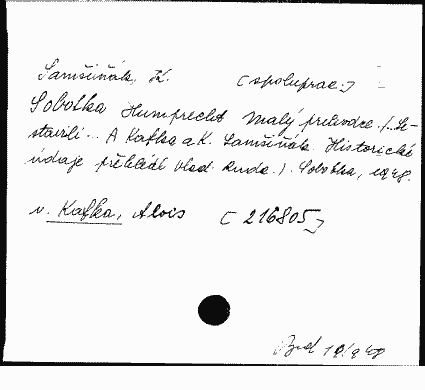 Samšiňák, K. [spoluprac.]
Sobotka Humprecht Malý průvodce. /Se-
stavili... A Kafka a K. Samšiňák. Historické
údaje přehlédl Vlad. Ruda.). Sobotka, 1948.
v. Kafka, Alois [216805]